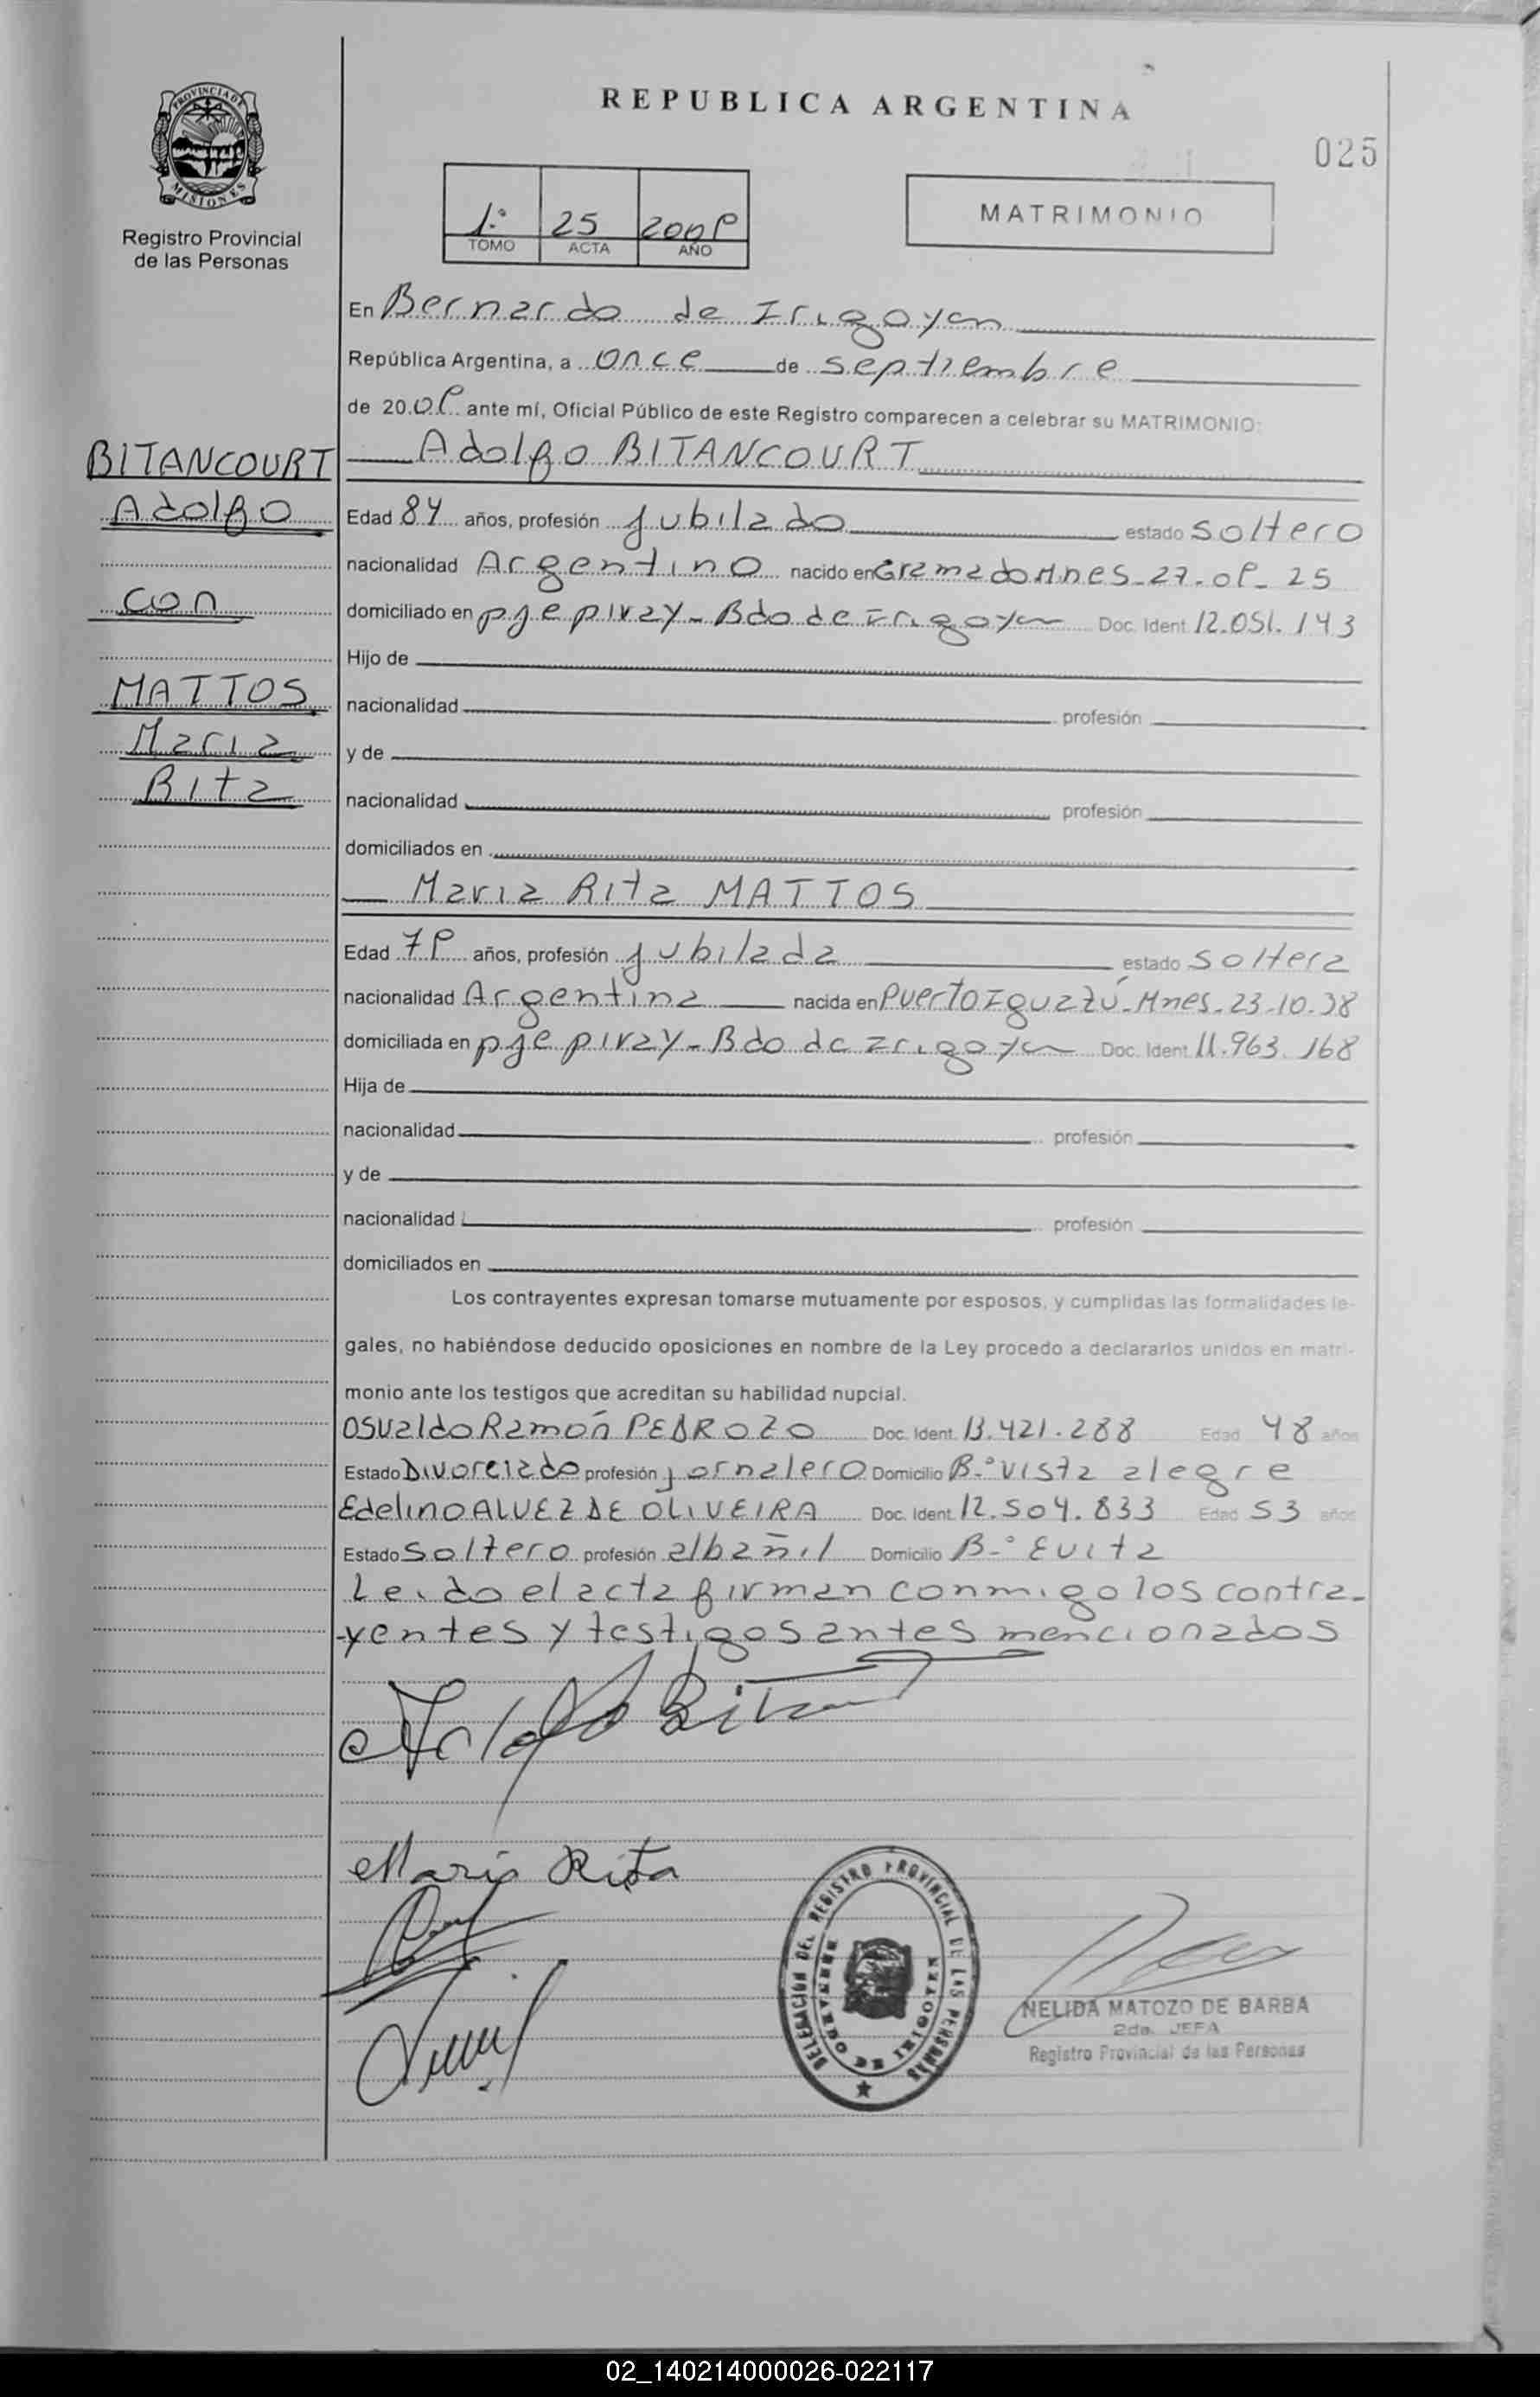 REPUBLICA ARGENTINA
025
PROVINCIA DE MISIONES
Registro Provincial
de las Personas
1º 25 2009
TOMO ACTA AÑO
MATRIMONIO
En Bernardo de Irigoyen
República Argentina, a once de septiembre
de 2009 ante mí, Oficial Público de este Registro comparecen a celebrar su MATRIMONIO:
BITANCOURT
Adolfo
con
MATTOS
Maria
Rita
Adolfo BITANCOURT
Edad 84 años, profesión jubilado estado soltero
nacionalidad Argentino nacido en Gramado Mnes-27-09-25
domiciliado en pje piray-Bdo de Irigoyen Doc. Ident 12.051.143
Hijo de
nacionalidad profesión
y de
nacionalidad profesión
domiciliados en
Maria Rita MATTOS
Edad 79 años, profesión jubilada estado soltera
nacionalidad Argentina nacida en Puerto Iguazú-Mnes-23-10-30
domiciliada en pje piray-Bdo de Irigoyen Doc. Ident 11.963.168
Hija de
nacionalidad profesión
y de
nacionalidad profesión
domiciliados en
Los contrayentes expresan tomarse mutuamente por esposos, y cumplidas las formalidades le-
gales, no habiéndose deducido oposiciones en nombre de la Ley procedo a declararlos unidos en matri-
monio ante los testigos que acreditan su habilidad nupcial.
Osvaldo Ramón PEDROZO Doc. Ident. 13.421.288 Edad 48 años
Estado Divorciado profesión jornalero Domicilio B-º Vista alegre
Edelino ALVEZ DE OLIVEIRA Doc. Ident. 12.504.833 Edad 53 años
Estado Soltero profesión albañil Domicilio B-º Evita
Leido el acta firman conmigo los contra-
-yentes y testigos antes mencionados
Adolfo Bitan
Maria Rita
DELEGACIÓN DEL REGISTRO PROVINCIAL DE LAS PERSONAS
DE IRIGOYEN
NELIDA MATOZO DE BARBA
2da. JEFA
Registro Provincial de las Personas
02_140214000026-022117